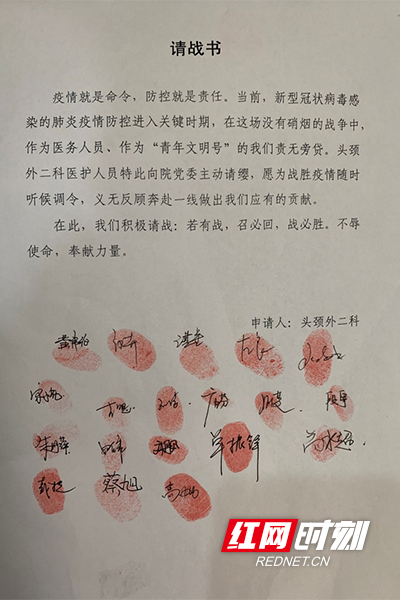 请战书
疫情就是命令，防控就是责任。当前，新型冠状病毒感
染的肺炎疫情防控进入关键时期，在这场没有硝烟的战争中，
作为医务人员、作为“青年文明号”的我们责无旁贷。头颈
外二科医护人员特此向院党委主动请缨，愿为战胜疫情随时
听候调令，义无反顾奔赴一线做出我们应有的贡献。
在此，我们积极请战：若有战，召必回，战必胜。不辱
使命，奉献力量。
申请人：头颈外二科
单振锋
蔡旭
红网时刻
REDNET.CN